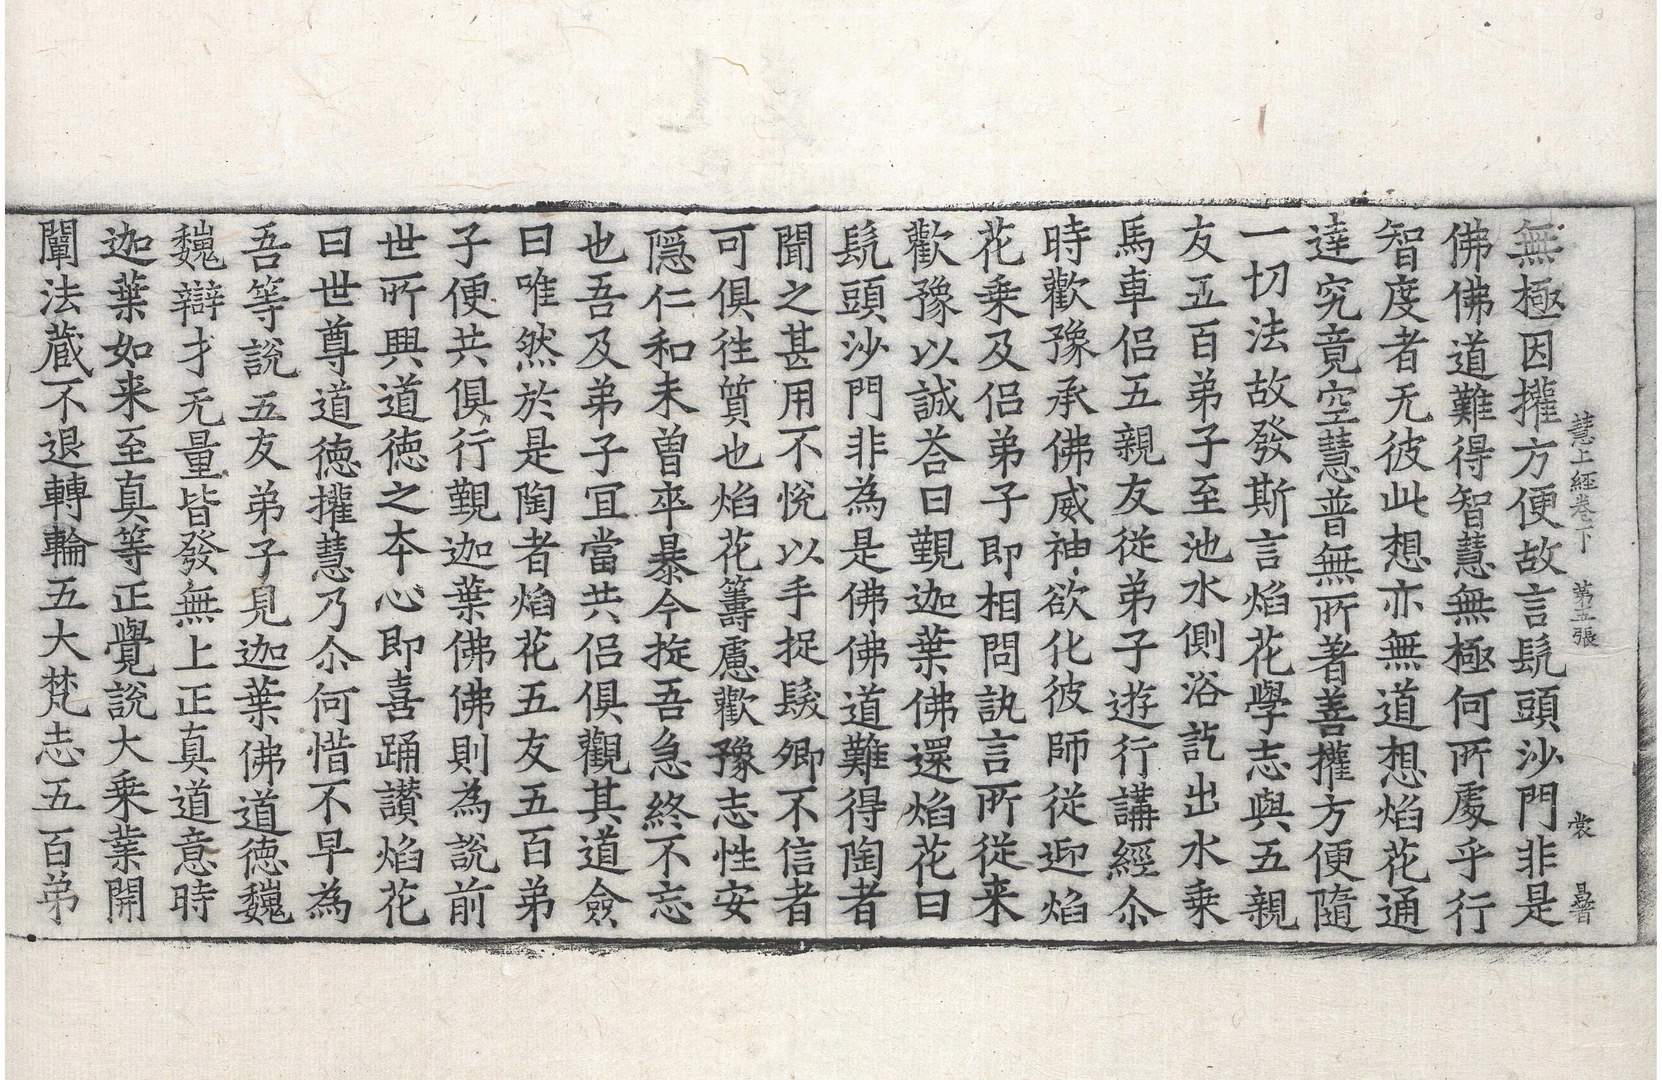 慧上經卷下　第五張　裳　㫤
無極因㩲方便故言髡頭沙門非是
佛佛道難得智慧無極何所䖏乎行
智度者无彼此想亦無道想焰花通
達究竟空慧普無所著善㩲方便隨
一切法故發斯言焰花學志與五親
友五百弟子至池水側浴訖出水乗
馬車侣五親友從弟子遊行講經尒
時歡豫承佛威神欲化彼師從迎焰
花乗及侣弟子即相問訊言所從来
歡豫以誠荅曰覲迦葉佛還焰花曰
髡頭沙門非為是佛佛道難得陶者
聞之甚用不悅以手捉髮卿不信者
可俱徃質也焰花籌慮歡豫志性安
隱仁和未曽卒暴今捉吾急終不忘
也吾及弟子冝當共侣俱觀其道儉
曰唯然於是陶者焰花五友五百弟
子便共俱行覲迦葉佛佛則為說前
世所興道德之夲心即喜踊讃焰花
曰世尊道德㩲慧乃尒何惜不早為
吾等說五友弟子見迦葉佛道德魏
魏辯才无量皆發無上正真道意時
迦葉如来至真等正覺說大乗業開
闡法蔵不退轉輪五大梵志五百弟